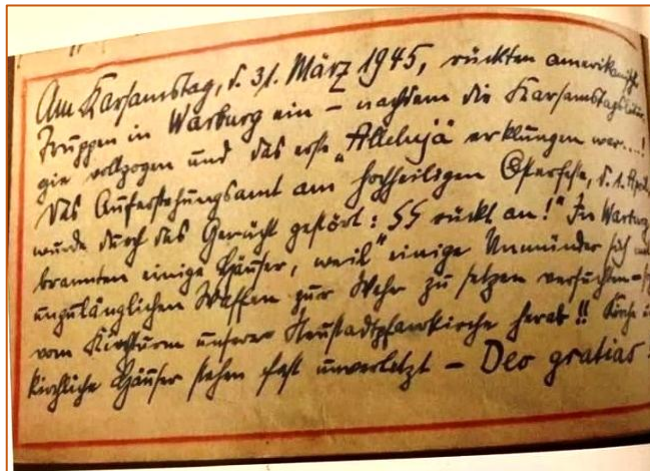 Am Karsamstag, d. 31. März 1945, rückten amerikanische
Truppen in Warburg ein – nachdem die Karsamstagslitur-
gie vollzogen und das erste „Alleluja" erklungen war...!
Das Auferstehungsamt am hochheiligen Osterfeste, d. 1. April,
wurde durch das Gerücht gestört: SS rückt an!" In Warburg
brannten einige Häuser, weil einige Unmünder sich mit
unzulänglichen Waffen zur Wehr zu setzen versuchten –
vom Kirchturm unserer Neustadtpfarrkirche herab!! Kirche u.
kirchliche Häuser stehen fast unverletzt – Deo gratias